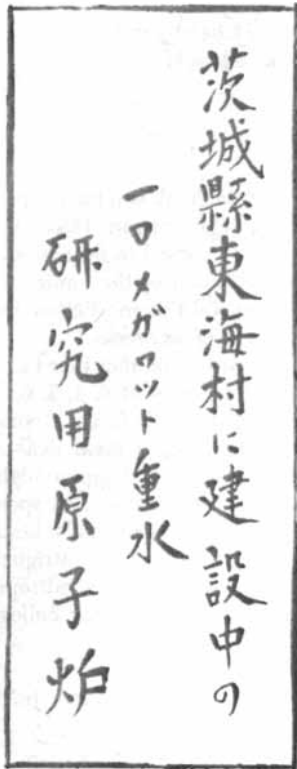 茨城縣東海村に建設中の
一〇メガワット重水
研究用原子炉